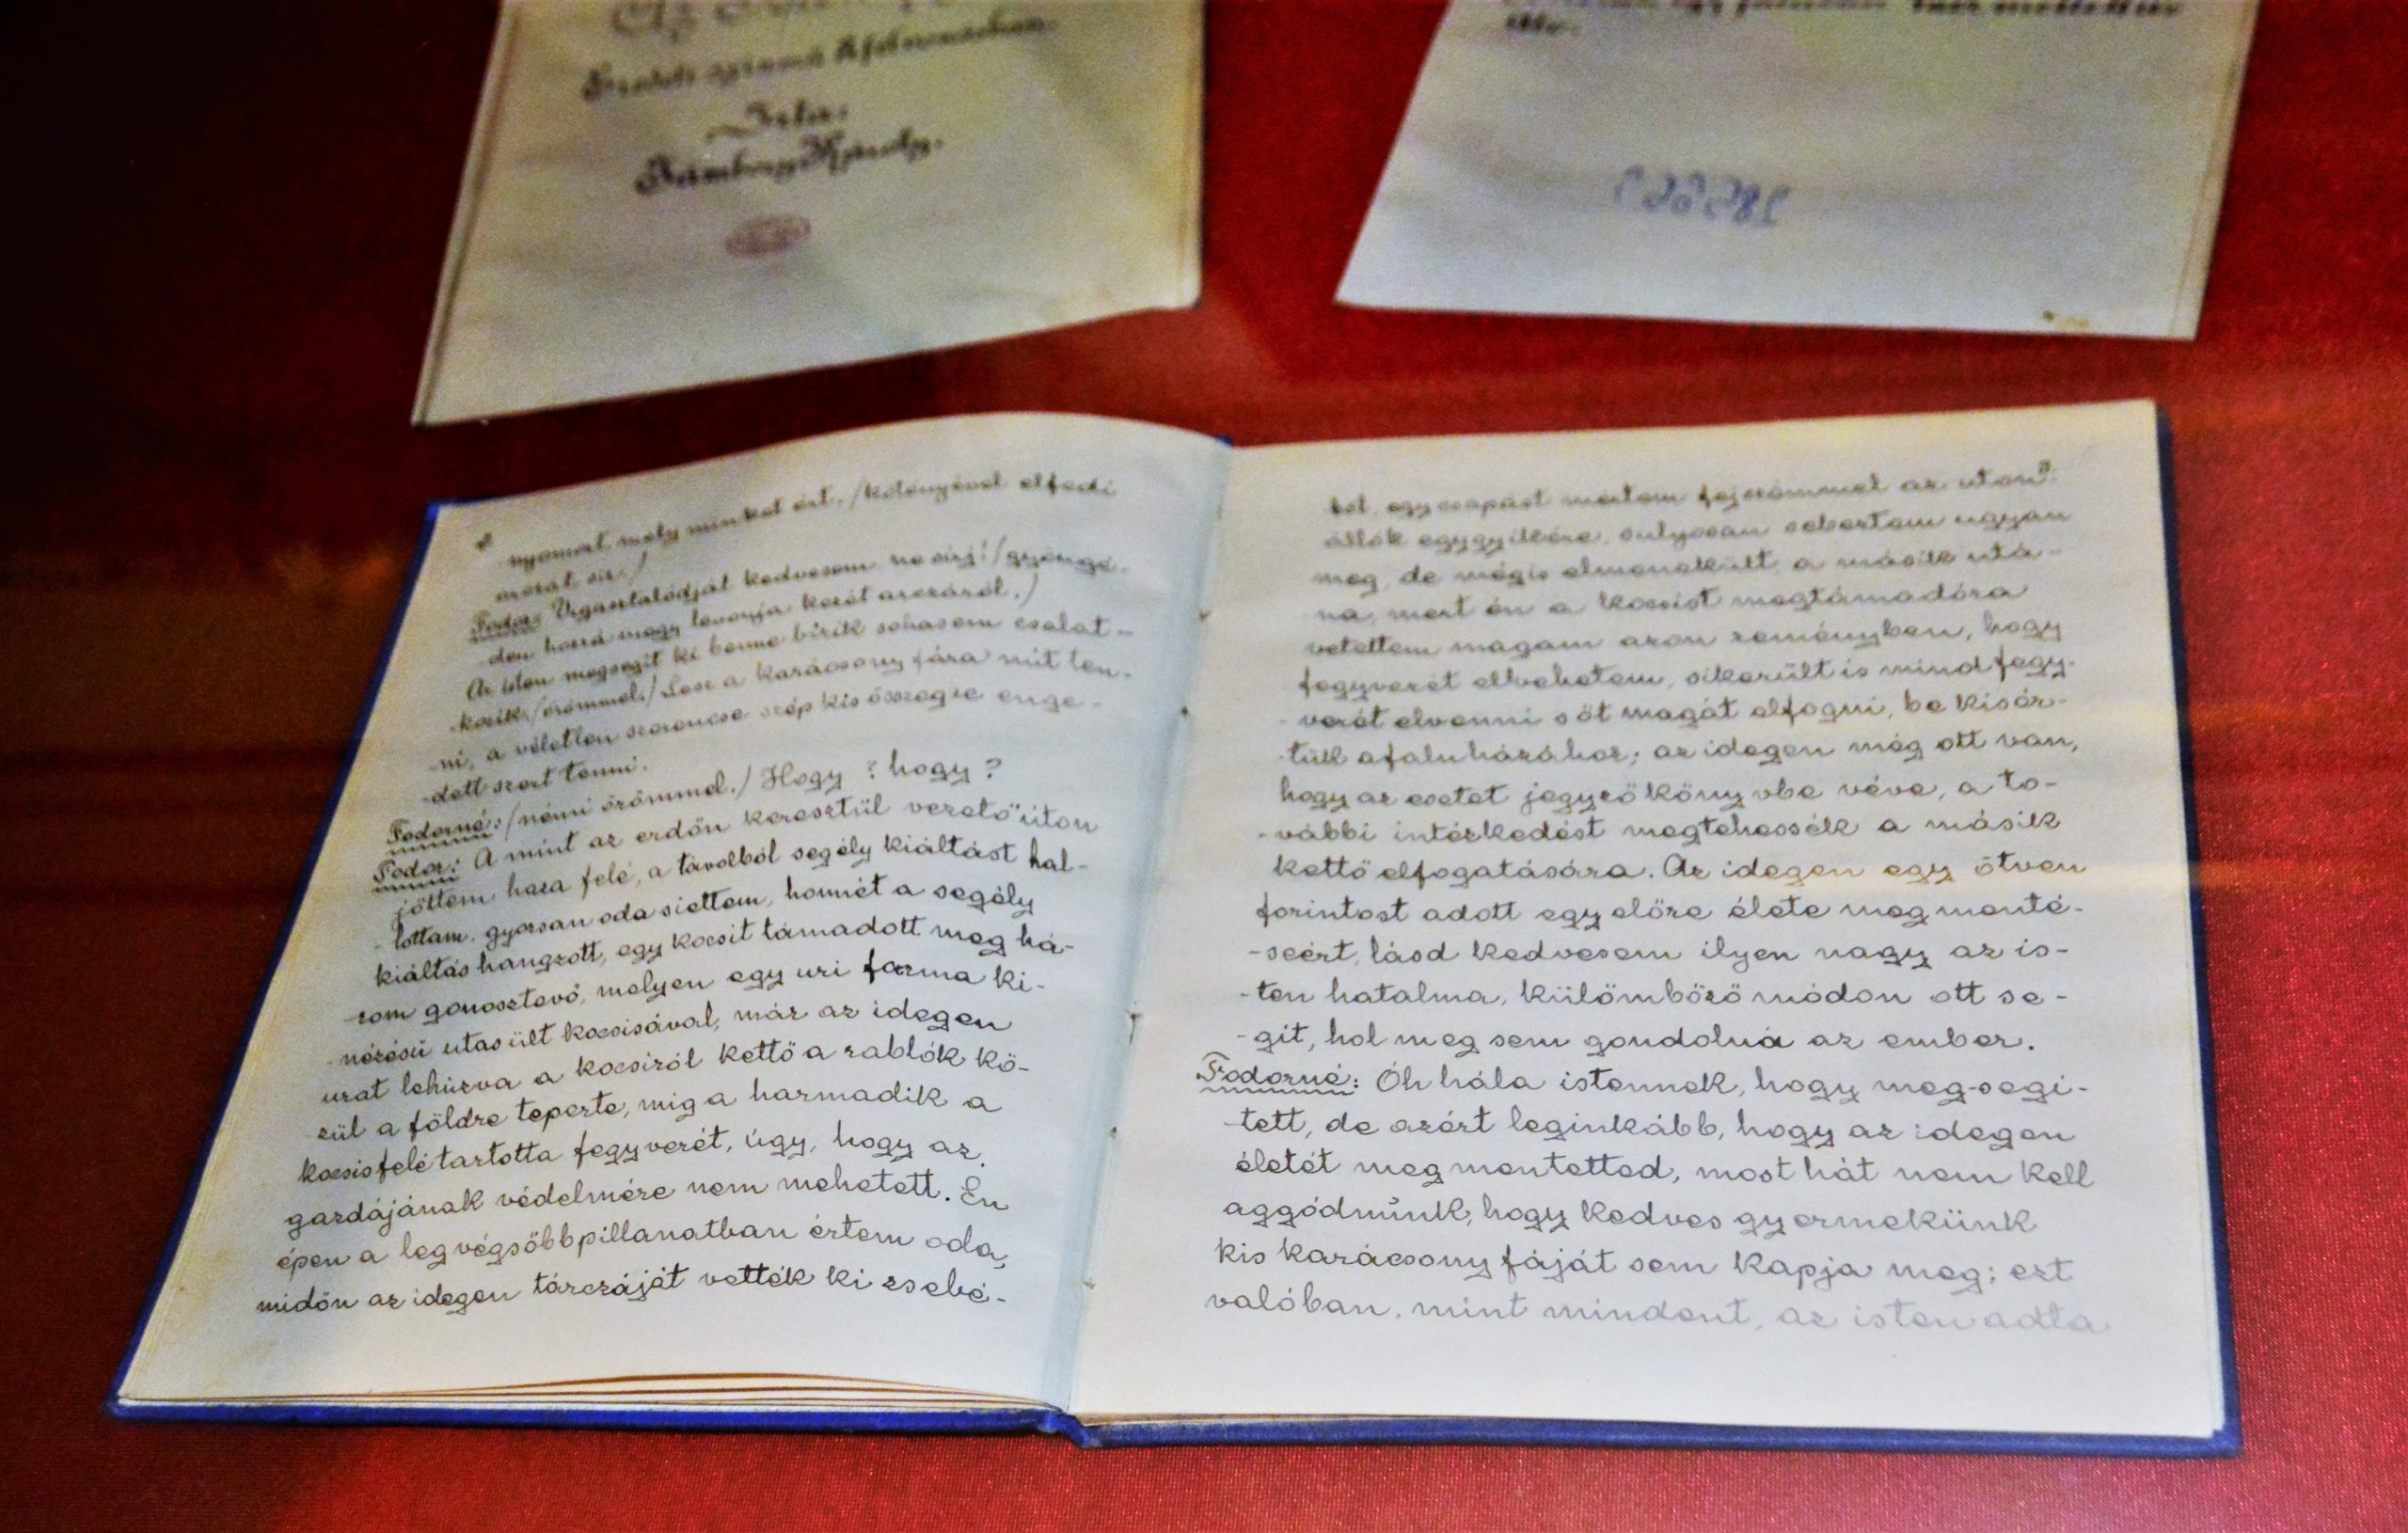 Irta:
nyomort, mely minket ért. /kötényével elfedi
arczát, sir./
Fodor: Vigasztalódjál kedvesem ne sirj! /gyöngé-
-den hozzá megy levonja kezét arczáról./
Az isten megsegit ki benne bizik sohasem csalat-
-kozik. /örömmel./ Lesz a karácsony fára mit ten-
-ni, a véletlen szerencse szép kis összegre enge-
-dett szert tenni.
Fodorné: /némi örömmel./ Hogy? hogy?
Fodor: A mint az erdőn keresztül vezető úton
jöttem haza felé, a távolból segély kiáltást hal-
-lottam. gyorsan oda siettem, honnét a segély
kiáltás hangzott, egy kocsit támadott meg há-
-rom gonosztevő, melyen egy uri forma ki-
-nézésű utas ült kocsisával, már az idegen
urat lehúzva a kocsiról kettő a rablók kö-
zül a földre teperte, mig a harmadik a
kocsis felé tartotta fegyverét, úgy, hogy az
gazdájának védelmére nem mehetett. Én
épen a legvégsőbb pillanatban értem oda,
midőn az idegen tárczáját vették ki zsebé-
3.
ből, egy csapást mértem fejszémmel az uton
állók egygyikére, sulyosan sebeztem ugyan
meg, de mégis elmenekült a másik utá-
na, mert én a kocsist megtámadóra
vetettem magam azon reményben, hogy
fegyverét elvehetem, sikerült is mind fegy-
-verét elvenni sőt magát elfogni, be kisér-
-tük a faluházához; az idegen még ott van,
hogy az esetet jegyzőkönyvbe véve, a to-
-vábbi intézkedést megtehessék a másik
kettő elfogatására. Az idegen egy ötven
forintost adott egyelőre élete megmenté-
-seért, lásd kedvesem ilyen nagy az is-
-ten hatalma, külömböző módon ott se-
-git, hol meg sem gondolná az ember.
Fodorné: Óh hála istennek, hogy meg-segi-
-tett, de azért leginkább, hogy az idegen
életét megmentetted, most hát nem kell
aggódnunk, hogy kedves gyermekünk
kis karácsony fáját sem kapja meg; ezt
valóban, mint mindent, az isten adta